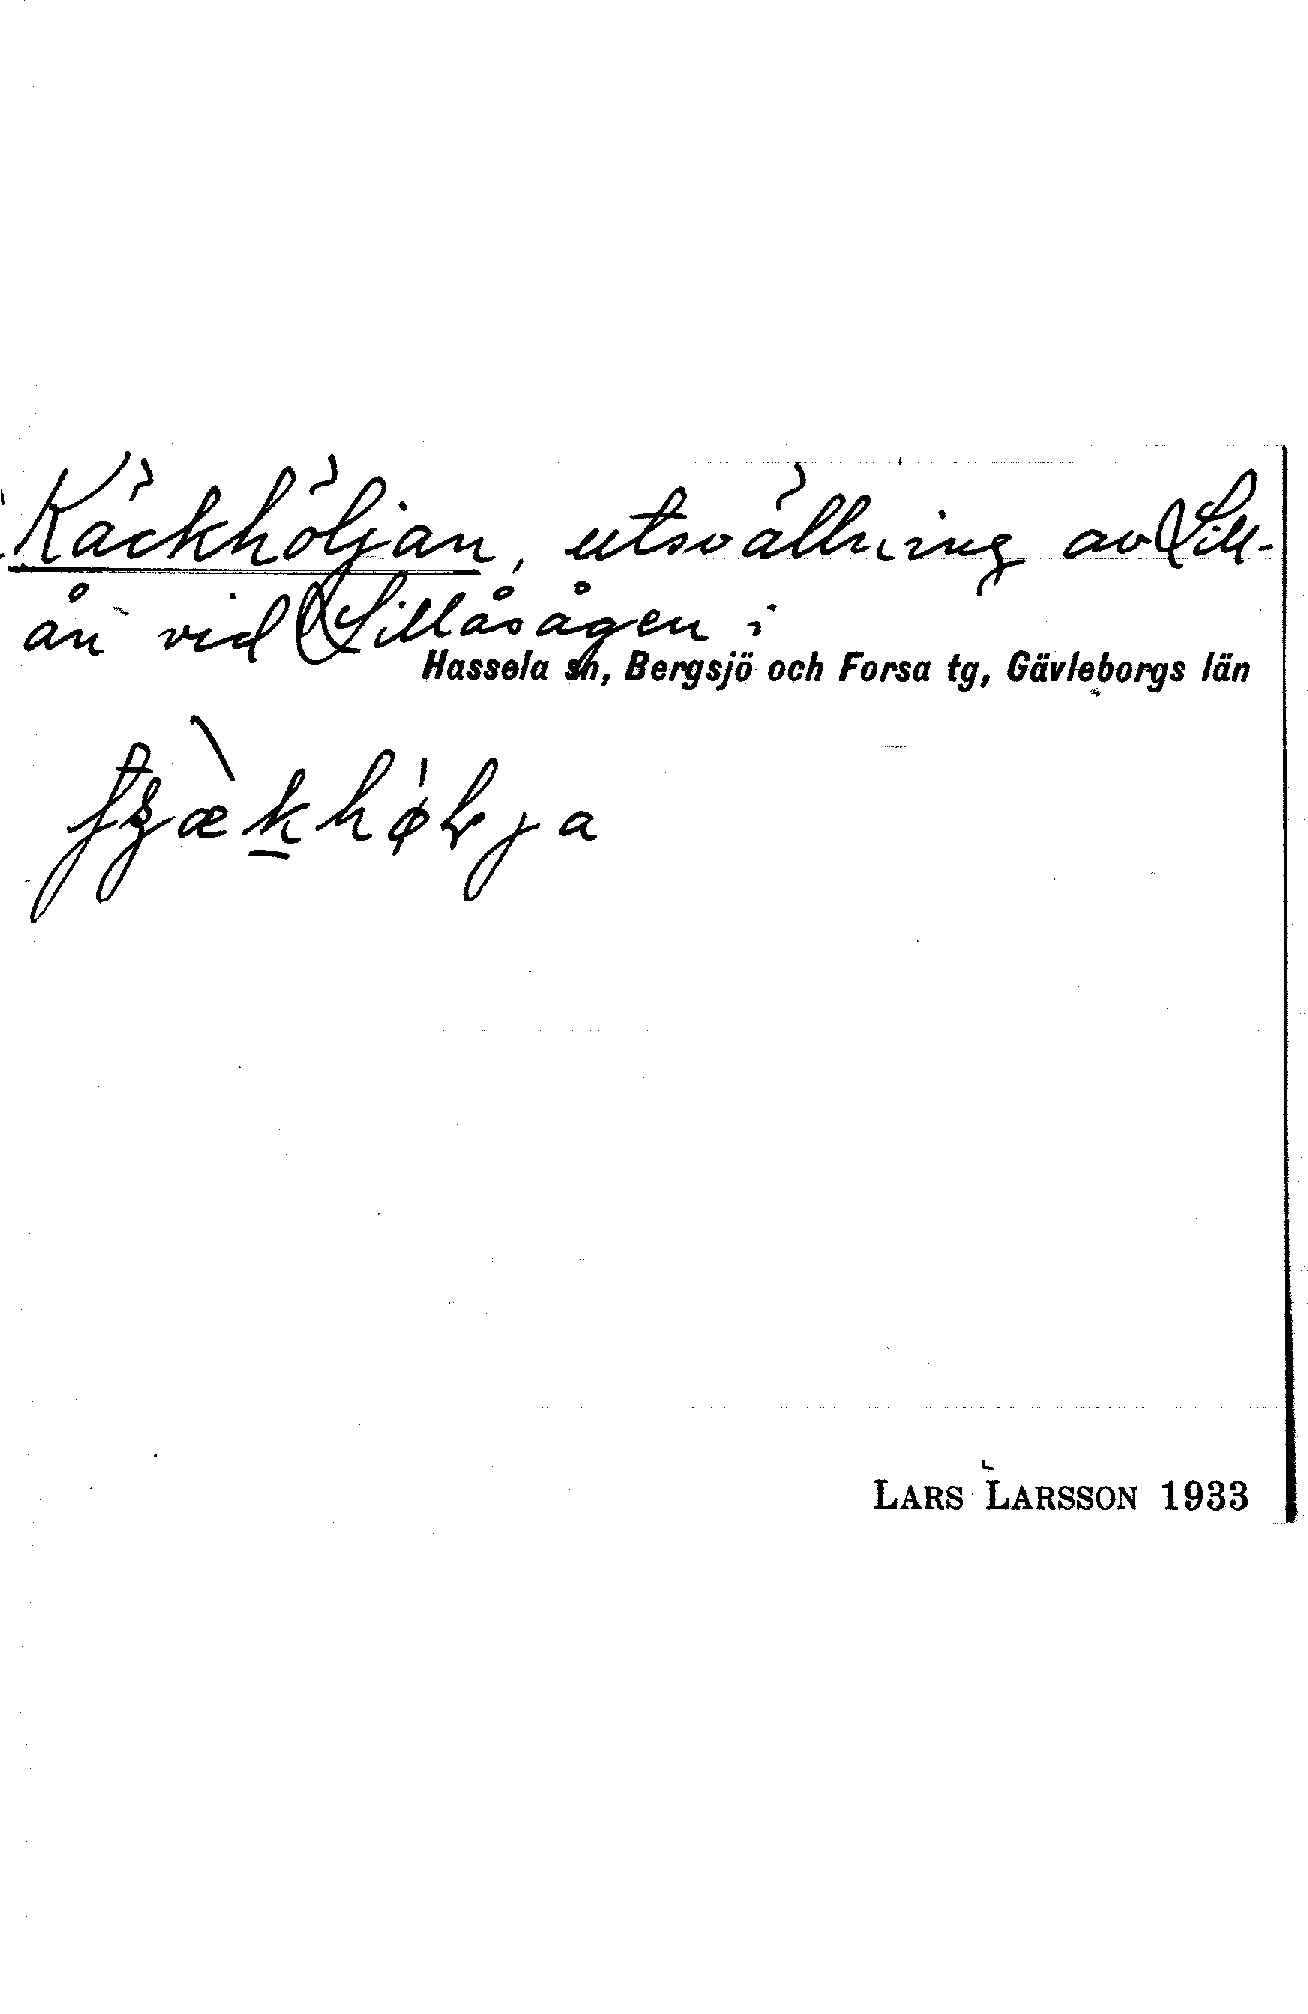 Käckhöljan, utsvällning av Lill-
ån vid Lillåsågen i
Hassela sn, Bergsjö och Forsa tg, Gävleborgs län
LARS LARSSON 1933